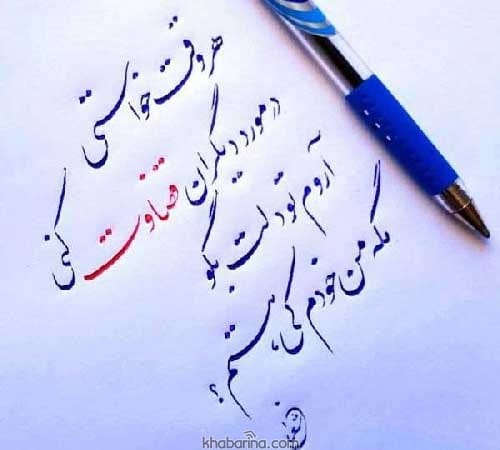 هر وقت خواستی
در مورد دیگران قضاوت کنی
آروم تو دلت بگو
مگه من خودم کی هستم؟
khabarina.com